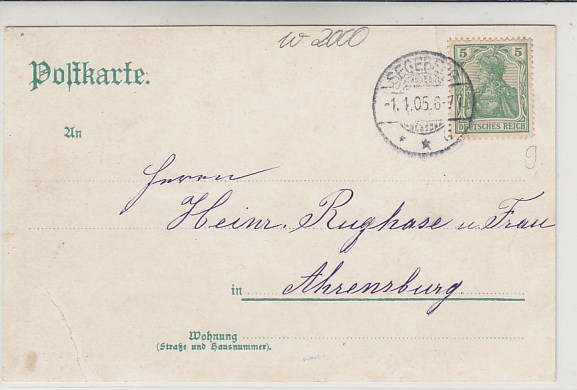 w 2000
Postkarte.
SEGEBERG
-1.1.05.6-7
5 5
DEUTSCHES REICH
g.
An
Herrn
Heinr. Rughase u. Frau
in Ahrensburg.
Wohnung
(Straße und Hausnummer).